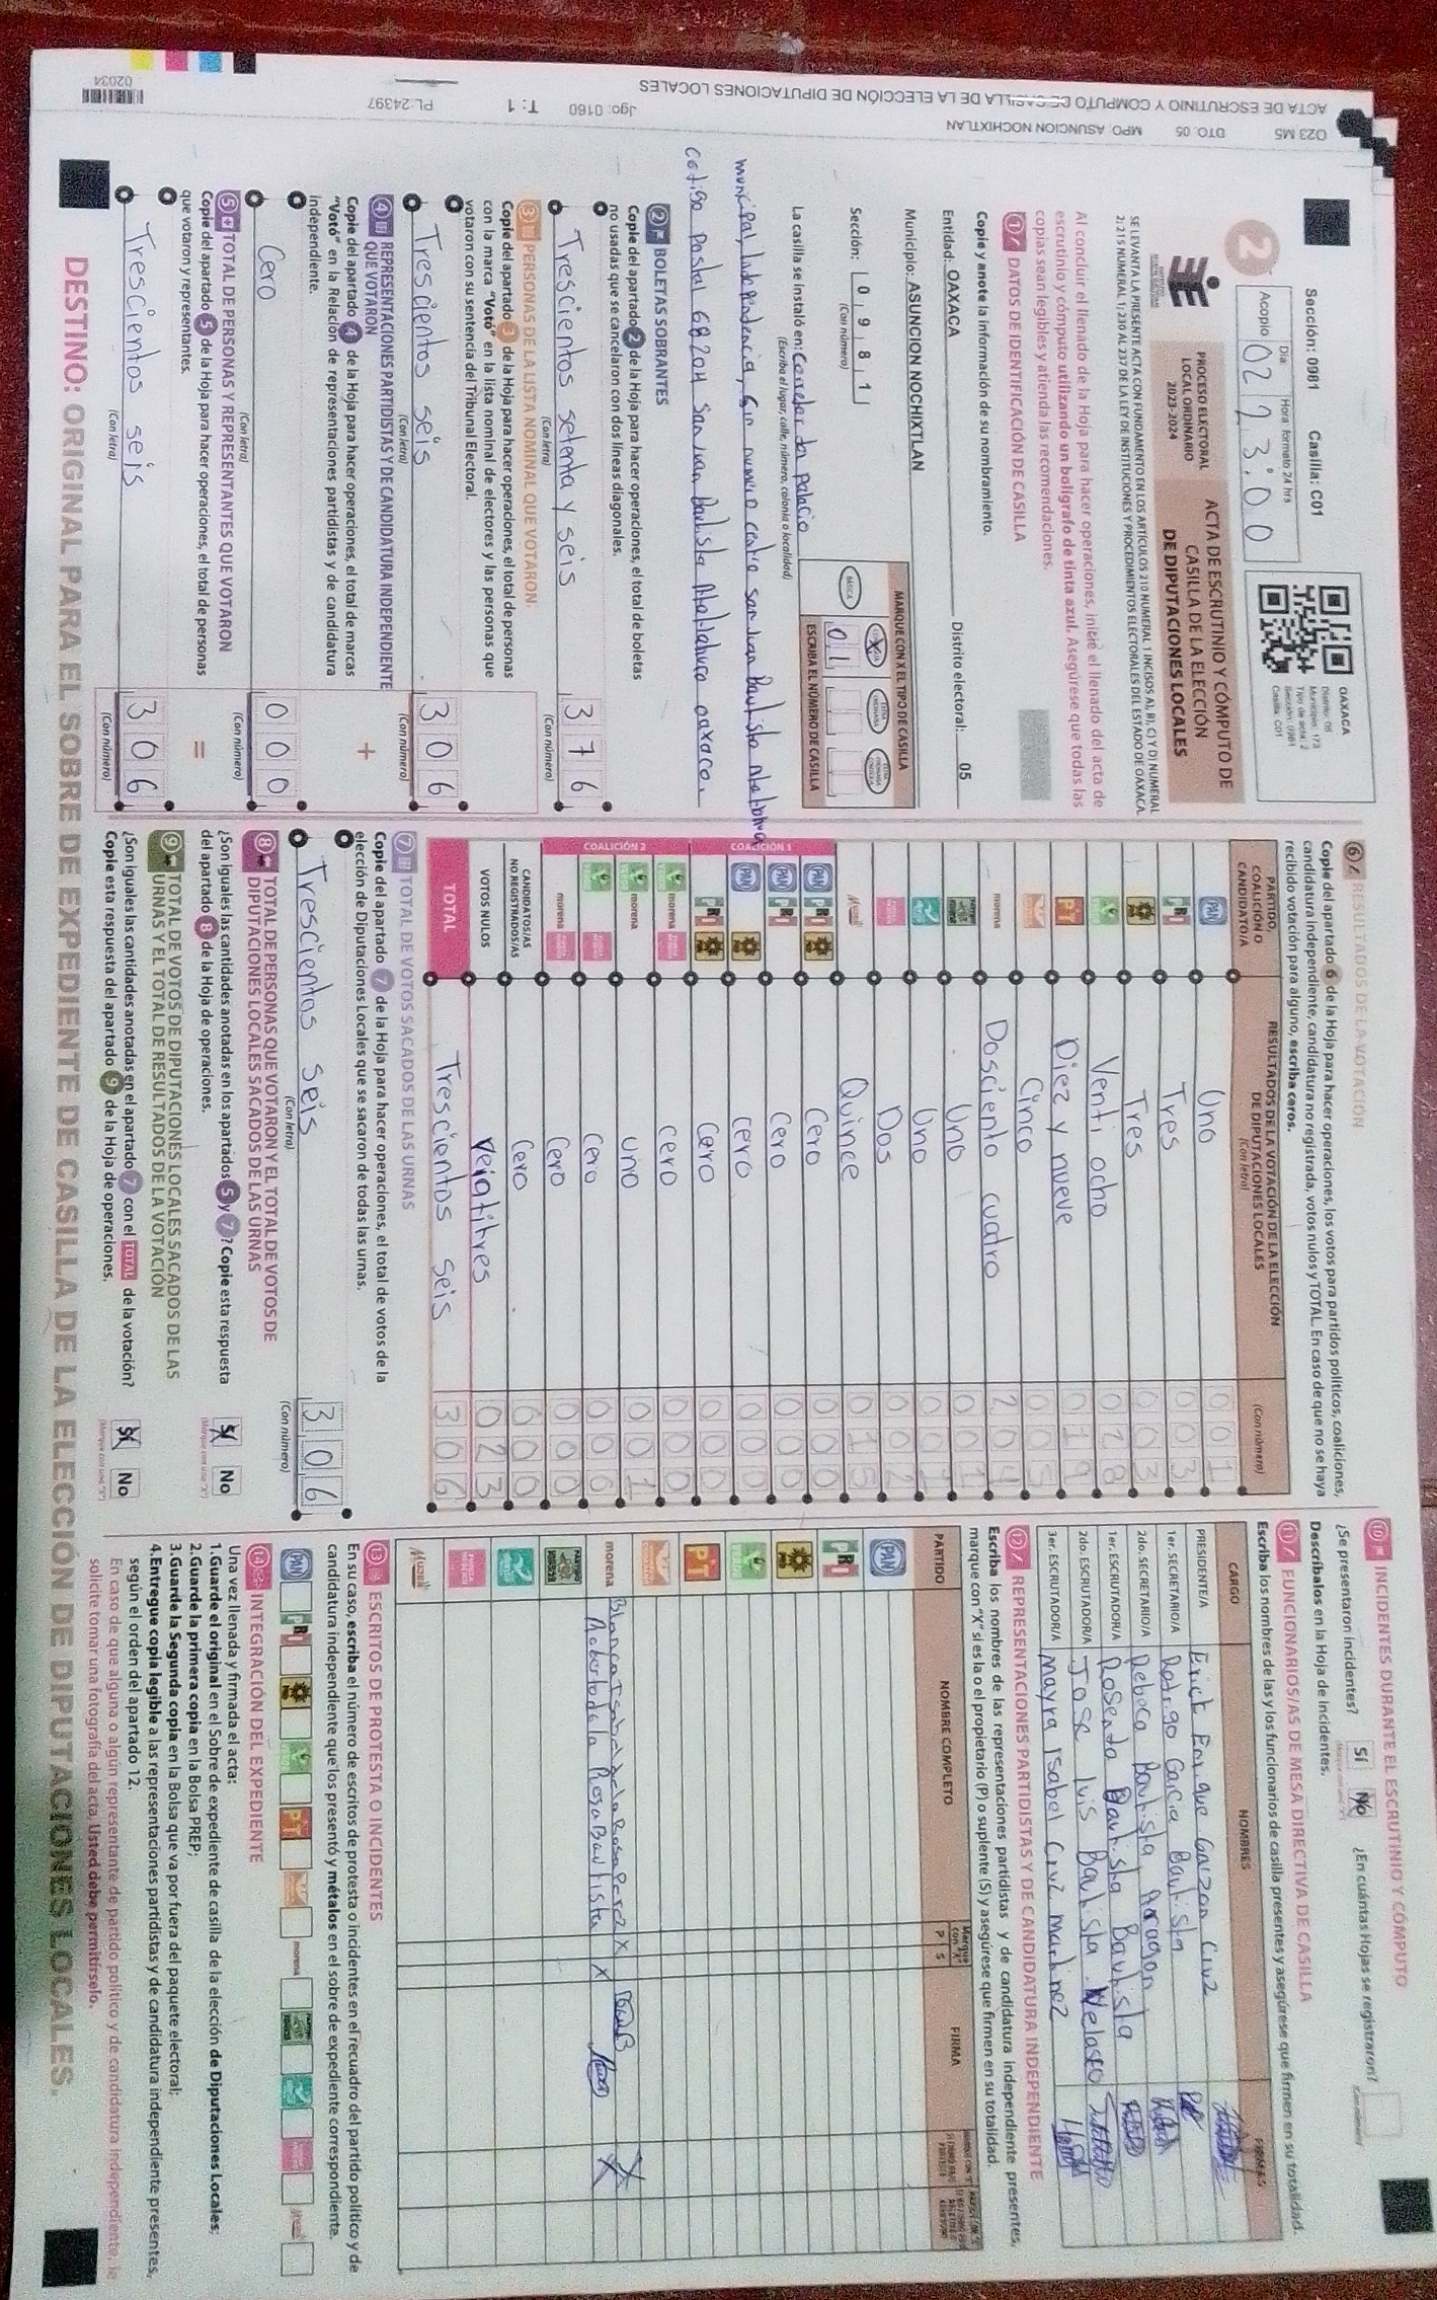 O23 M5 DTO. 05 MPO. ASUNCION NOCHIXTLAN
ACTA DE ESCRUTINIO Y COMPUTO DE CASILLA DE LA ELECCIÓN DE DIPUTACIONES LOCALES
Jgo: 0160 T: 1 PL: 24397
02034
Sección: 0981 Casilla: C01
Día Hora: formato 24 hrs
Acopio 02 23:00
OAXACA
Distrito: 05
Municipio: 173
Tipo de acta: 2
Sección: 0981
Casilla: C01
2
PROCESO ELECTORAL
LOCAL ORDINARIO
2023-2024
ACTA DE ESCRUTINIO Y CÓMPUTO DE
CASILLA DE LA ELECCIÓN
DE DIPUTACIONES LOCALES
SE LEVANTA LA PRESENTE ACTA CON FUNDAMENTO EN LOS ARTÍCULOS 210 NUMERAL 1 INCISOS A), B), C) Y D) NUMERAL
2; 215 NUMERAL 1; 230 AL 237 DE LA LEY DE INSTITUCIONES Y PROCEDIMIENTOS ELECTORALES DEL ESTADO DE OAXACA.
Al concluir el llenado de la Hoja para hacer operaciones, inicie el llenado del acta de
escrutinio y cómputo utilizando un bolígrafo de tinta azul. Asegúrese que todas las
copias sean legibles y atienda las recomendaciones.
1 DATOS DE IDENTIFICACIÓN DE CASILLA
Copie y anote la información de su nombramiento.
Entidad: OAXACA Distrito electoral: 05
Municipio: ASUNCION NOCHIXTLAN
Sección: 0 9 8 1
(Con número)
MARQUE CON X EL TIPO DE CASILLA
BÁSICA X
0 1
ESCRIBA EL NÚMERO DE CASILLA
La casilla se instaló en: Corredor de palacio
(Escriba el lugar, calle, número, colonia o localidad)
municipal, Independencia, Sin numero centro san Juan Bautista
codigo postal 68704 San Juan Bautista Atatlahuca oaxaca.
2 BOLETAS SOBRANTES
Copie del apartado 2 de la Hoja para hacer operaciones, el total de boletas
no usadas que se cancelaron con dos líneas diagonales.
Trescientos setenta y seis 376
(Con letra) (Con número)
3 PERSONAS DE LA LISTA NOMINAL QUE VOTARON
Copie del apartado 3 de la Hoja para hacer operaciones, el total de personas
con la marca "Votó" en la lista nominal de electores y las personas que
votaron con su sentencia del Tribunal Electoral.
Trescientos seis 306
(Con letra) (Con número)
4 REPRESENTACIONES PARTIDISTAS Y DE CANDIDATURA INDEPENDIENTE
QUE VOTARON
+
Copie del apartado 4 de la Hoja para hacer operaciones, el total de marcas
"Votó" en la Relación de representaciones partidistas y de candidatura
independiente.
Cero 000
(Con letra) (Con número)
5 TOTAL DE PERSONAS Y REPRESENTANTES QUE VOTARON
=
Copie del apartado 5 de la Hoja para hacer operaciones, el total de personas
que votaron y representantes.
Trescientos seis 306
(Con letra) (Con número)
6 RESULTADOS DE LA VOTACIÓN
Copie del apartado 6 de la Hoja para hacer operaciones, los votos para partidos políticos, coaliciones,
candidatura independiente, candidatura no registrada, votos nulos y TOTAL. En caso de que no se haya
recibido votación para alguno, escriba ceros.
PARTIDO, COALICIÓN O CANDIDATO/A
RESULTADOS DE LA VOTACIÓN DE LA ELECCIÓN
DE DIPUTACIONES LOCALES
(Con letra) (Con número)
PAN Uno 001
PRI Tres 003
PRD Tres 003
VERDE Venti ocho 028
PT Diez y nueve 019
Cinco 005
morena Dosciento cuatro 204
Uno 001
Uno 001
Dos 002
Mujer Quince 015
COALICIÓN 1
PAN PRI PRD Cero 000
PAN PRI Cero 000
PAN PRD cero 000
PRI PRD Cero 000
COALICIÓN 2
VERDE morena cero 000
VERDE morena uno 001
VERDE Cero 000
morena Cero 000
CANDIDATOS/AS
NO REGISTRADOS/AS Cero 000
VOTOS NULOS Veintitres 023
TOTAL Trescientos seis 306
7 TOTAL DE VOTOS SACADOS DE LAS URNAS
Copie del apartado 7 de la Hoja para hacer operaciones, el total de votos de la
elección de Diputaciones Locales que se sacaron de todas las urnas.
Trescientos seis 306
(Con letra) (Con número)
8 TOTAL DE PERSONAS QUE VOTARON Y EL TOTAL DE VOTOS DE
DIPUTACIONES LOCALES SACADOS DE LAS URNAS
¿Son iguales las cantidades anotadas en los apartados 5 y 7? Copie esta respuesta
del apartado 8 de la Hoja de operaciones.
Sí X No
9 TOTAL DE VOTOS DE DIPUTACIONES LOCALES SACADOS DE LAS
URNAS Y EL TOTAL DE RESULTADOS DE LA VOTACIÓN
¿Son iguales las cantidades anotadas en el apartado 7 con el TOTAL de la votación?
Copie esta respuesta del apartado 9 de la Hoja de operaciones.
Sí X No
10 INCIDENTES DURANTE EL ESCRUTINIO Y CÓMPUTO
¿Se presentaron incidentes? Sí No X ¿En cuántas Hojas se registraron?
Descríbalos en la Hoja de Incidentes.
11 FUNCIONARIOS/AS DE MESA DIRECTIVA DE CASILLA
Escriba los nombres de las y los funcionarios de casilla presentes y asegúrese que firmen en su totalidad.
CARGO NOMBRES FIRMAS
PRESIDENTE/A Erick Enrique Garzon Cruz
1er. SECRETARIO/A Rodrigo Garcia Bautista
2do. SECRETARIO/A Rebeca Bautista Aragon
1er. ESCRUTADOR/A Rosenda Bautista Bautista
2do. ESCRUTADOR/A Jose luis Bautista Velasco
3er. ESCRUTADOR/A mayra Isabel Cruz martinez
12 REPRESENTACIONES PARTIDISTAS Y DE CANDIDATURA INDEPENDIENTE
Escriba los nombres de las representaciones partidistas y de candidatura independiente presentes,
marque con "X" si es la o el propietario (P) o suplente (S) y asegúrese que firmen en su totalidad.
PARTIDO NOMBRE COMPLETO Marque con "X" P S FIRMA
PAN
PRI
PRD
VERDE
PT
morena Blanca Isabel de la Rosa Perez X X
Roberto de la Rosa Bautista X X
Mujer
13 ESCRITOS DE PROTESTA O INCIDENTES
En su caso, escriba el número de escritos de protesta o incidentes en el recuadro del partido político y de
candidatura independiente que los presentó y métalos en el sobre de expediente correspondiente.
PAN PRI PRD VERDE PT morena Mujer
14 INTEGRACIÓN DEL EXPEDIENTE
Una vez llenada y firmada el acta:
1.Guarde el original en el Sobre de expediente de casilla de la elección de Diputaciones Locales;
2.Guarde la primera copia en la Bolsa PREP;
3.Guarde la Segunda copia en la Bolsa que va por fuera del paquete electoral;
4.Entregue copia legible a las representaciones partidistas y de candidatura independiente presentes,
según el orden del apartado 12.
En caso de que alguna o algún representante de partido político y de candidatura independiente, le
solicite tomar una fotografía del acta, Usted debe permitírselo.
DESTINO: ORIGINAL PARA EL SOBRE DE EXPEDIENTE DE CASILLA DE LA ELECCIÓN DE DIPUTACIONES LOCALES.